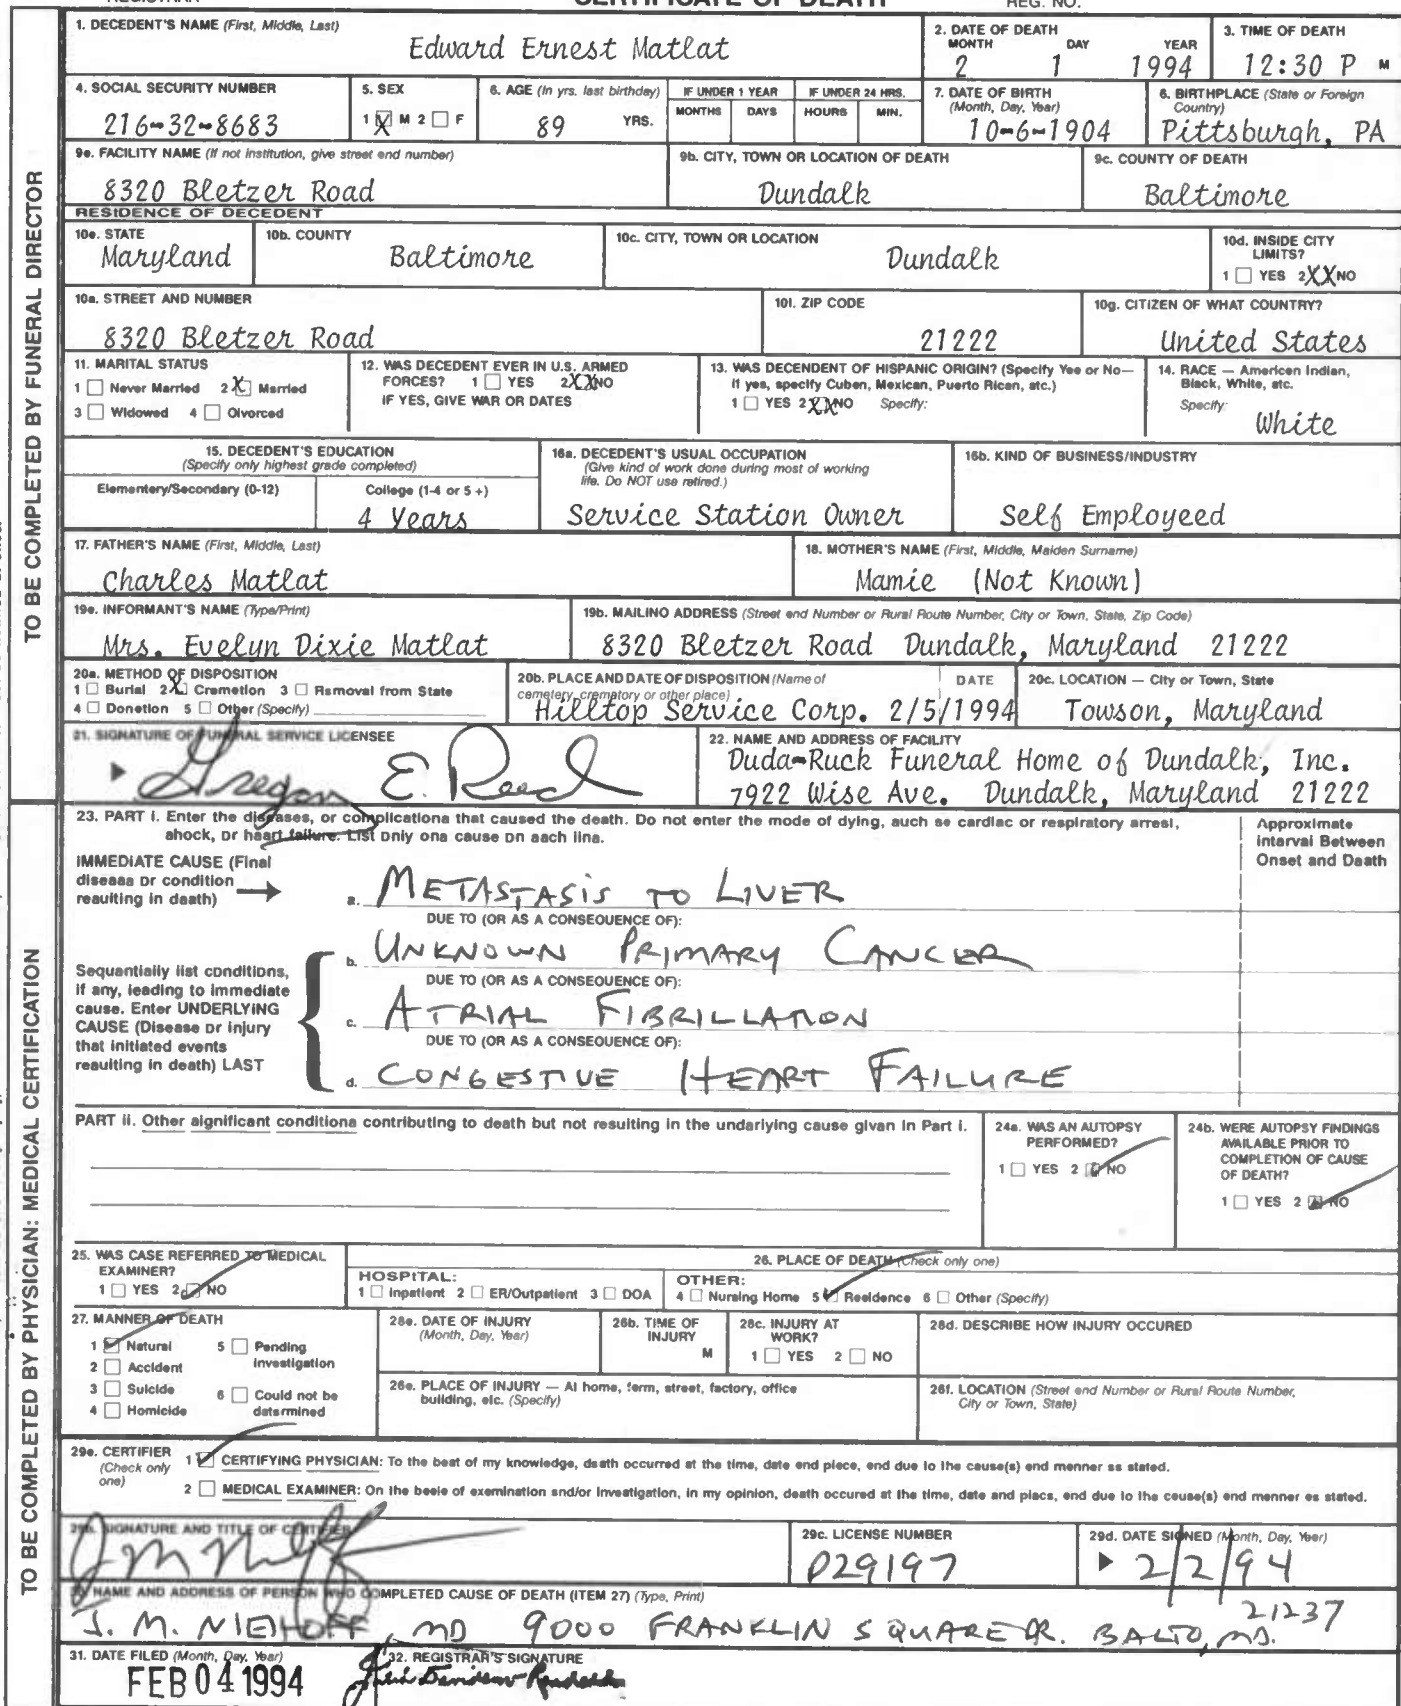 CERTIFICATE OF DEATH
REG. NO.
TO BE COMPLETED BY FUNERAL DIRECTOR
1. DECEDENT'S NAME (First, Middle, Last)
Edward Ernest Matlat
2. DATE OF DEATH
MONTH DAY YEAR
2 1 1994
3. TIME OF DEATH
12:30 P M
4. SOCIAL SECURITY NUMBER
216-32-8683
5. SEX
1 X M 2 F
6. AGE (In yrs. last birthday)
89 YRS.
IF UNDER 1 YEAR
MONTHS DAYS
IF UNDER 24 HRS.
HOURS MIN.
7. DATE OF BIRTH
(Month, Day, Year)
10-6-1904
8. BIRTHPLACE (State or Foreign
Country)
Pittsburgh, PA
9a. FACILITY NAME (If not institution, give street and number)
8320 Bletzer Road
9b. CITY, TOWN OR LOCATION OF DEATH
Dundalk
9c. COUNTY OF DEATH
Baltimore
RESIDENCE OF DECEDENT
10a. STATE
Maryland
10b. COUNTY
Baltimore
10c. CITY, TOWN OR LOCATION
Dundalk
10d. INSIDE CITY
LIMITS?
1 YES 2 XX NO
10e. STREET AND NUMBER
8320 Bletzer Road
10f. ZIP CODE
21222
10g. CITIZEN OF WHAT COUNTRY?
United States
11. MARITAL STATUS
1 Never Married 2 X Married
3 Widowed 4 Divorced
12. WAS DECEDENT EVER IN U.S. ARMED
FORCES? 1 YES 2 XX NO
IF YES, GIVE WAR OR DATES
13. WAS DECENDENT OF HISPANIC ORIGIN? (Specify Yes or No—
If yes, specify Cuban, Mexican, Puerto Rican, etc.)
1 YES 2 XX NO Specify:
14. RACE — American Indian,
Black, White, etc.
Specify:
White
15. DECEDENT'S EDUCATION
(Specify only highest grade completed)
Elementary/Secondary (0-12)
College (1-4 or 5 +)
4 Years
16a. DECEDENT'S USUAL OCCUPATION
(Give kind of work done during most of working
life. Do NOT use retired.)
Service Station Owner
16b. KIND OF BUSINESS/INDUSTRY
Self Employeed
17. FATHER'S NAME (First, Middle, Last)
Charles Matlat
18. MOTHER'S NAME (First, Middle, Maiden Surname)
Mamie (Not Known)
19a. INFORMANT'S NAME (Type/Print)
Mrs. Evelyn Dixie Matlat
19b. MAILING ADDRESS (Street and Number or Rural Route Number, City or Town, State, Zip Code)
8320 Bletzer Road Dundalk, Maryland 21222
20a. METHOD OF DISPOSITION
1 Burial 2 X Cremation 3 Removal from State
4 Donation 5 Other (Specify)
20b. PLACE AND DATE OF DISPOSITION (Name of
cemetery, crematory or other place)
DATE
Hilltop Service Corp. 2/5/1994
20c. LOCATION — City or Town, State
Towson, Maryland
21. SIGNATURE OF FUNERAL SERVICE LICENSEE
Gregory E. Reed
22. NAME AND ADDRESS OF FACILITY
Duda-Ruck Funeral Home of Dundalk, Inc.
7922 Wise Ave. Dundalk, Maryland 21222
TO BE COMPLETED BY PHYSICIAN: MEDICAL CERTIFICATION
23. PART I. Enter the diseases, or complications that caused the death. Do not enter the mode of dying, such as cardiac or respiratory arrest,
shock, or heart failure. List only one cause on each line.
Approximate
Interval Between
Onset and Death
IMMEDIATE CAUSE (Final
disease or condition
resulting in death)
a. METASTASIS TO LIVER
DUE TO (OR AS A CONSEQUENCE OF):
b. UNKNOWN PRIMARY CANCER
DUE TO (OR AS A CONSEQUENCE OF):
Sequentially list conditions,
if any, leading to immediate
cause. Enter UNDERLYING
CAUSE (Disease or injury
that initiated events
resulting in death) LAST
c. ATRIAL FIBRILLATION
DUE TO (OR AS A CONSEQUENCE OF):
d. CONGESTIVE HEART FAILURE
PART II. Other significant conditions contributing to death but not resulting in the underlying cause given in Part I.
24a. WAS AN AUTOPSY
PERFORMED?
1 YES 2 NO
24b. WERE AUTOPSY FINDINGS
AVAILABLE PRIOR TO
COMPLETION OF CAUSE
OF DEATH?
1 YES 2 NO
25. WAS CASE REFERRED TO MEDICAL
EXAMINER?
1 YES 2 NO
26. PLACE OF DEATH (Check only one)
HOSPITAL:
1 Inpatient 2 ER/Outpatient 3 DOA
OTHER:
4 Nursing Home 5 Residence 6 Other (Specify)
27. MANNER OF DEATH
1 Natural 5 Pending
Investigation
2 Accident
3 Suicide 6 Could not be
determined
4 Homicide
28a. DATE OF INJURY
(Month, Day, Year)
28b. TIME OF
INJURY
M
28c. INJURY AT
WORK?
1 YES 2 NO
28d. DESCRIBE HOW INJURY OCCURED
28e. PLACE OF INJURY — At home, farm, street, factory, office
building, etc. (Specify)
28f. LOCATION (Street and Number or Rural Route Number,
City or Town, State)
29a. CERTIFIER
(Check only
one)
1 CERTIFYING PHYSICIAN: To the best of my knowledge, death occurred at the time, date and place, and due to the cause(s) and manner as stated.
2 MEDICAL EXAMINER: On the basis of examination and/or investigation, in my opinion, death occured at the time, date and place, and due to the cause(s) and manner as stated.
29b. SIGNATURE AND TITLE OF CERTIFIER
29c. LICENSE NUMBER
D29197
29d. DATE SIGNED (Month, Day, Year)
2/2/94
30. NAME AND ADDRESS OF PERSON WHO COMPLETED CAUSE OF DEATH (ITEM 27) (Type, Print)
J. M. NIEHOFF, MD 9000 FRANKLIN SQUARE DR. BALTO, MD. 21237
31. DATE FILED (Month, Day, Year)
FEB 04 1994
32. REGISTRAR'S SIGNATURE